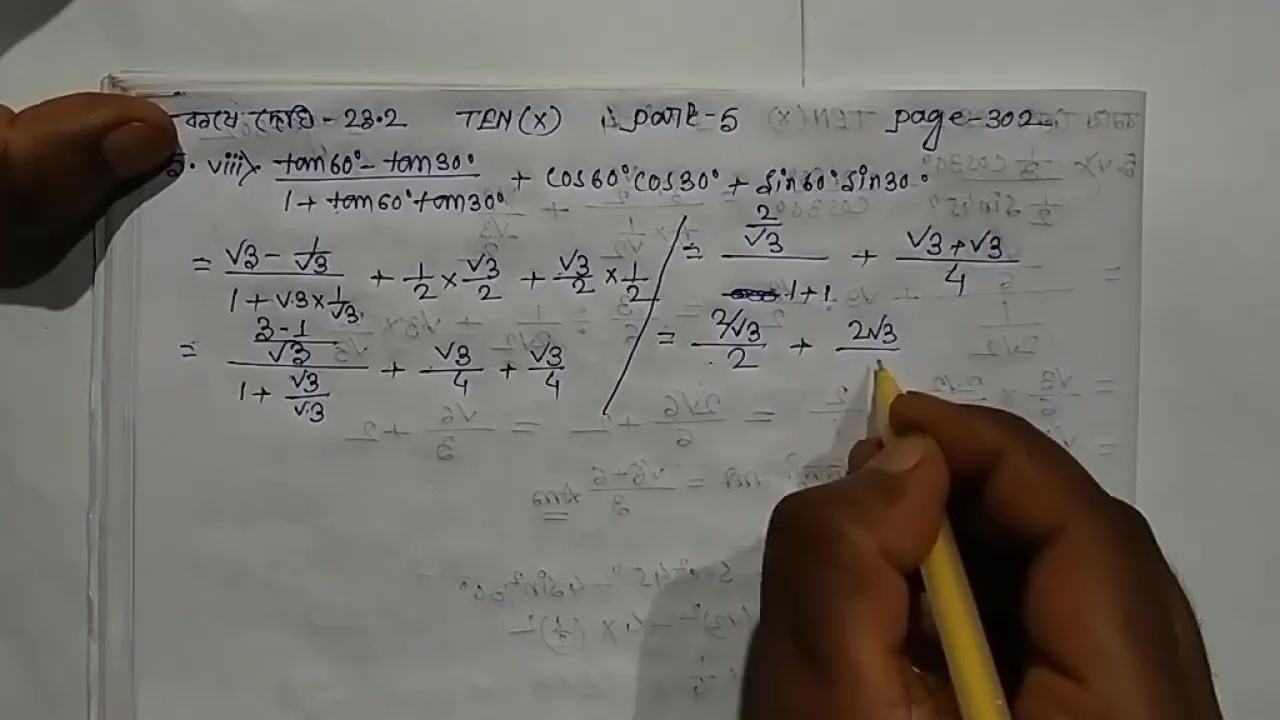 কষে দেখি - 23.2 TEN (X) part-5 page-302
5. viii> (tan60° - tan30°)/(1 + tan60° tan30°) + cos60° cos30° + sin60° sin30°
= (√3 - 1/√3)/(1 + √3 × 1/√3) + 1/2 × √3/2 + √3/2 × 1/2
= ((3-1)/√3)/(1 + √3/√3) + √3/4 + √3/4
= (2/√3)/(1+1) + (√3+√3)/4
= (2/√3)/2 + 2√3